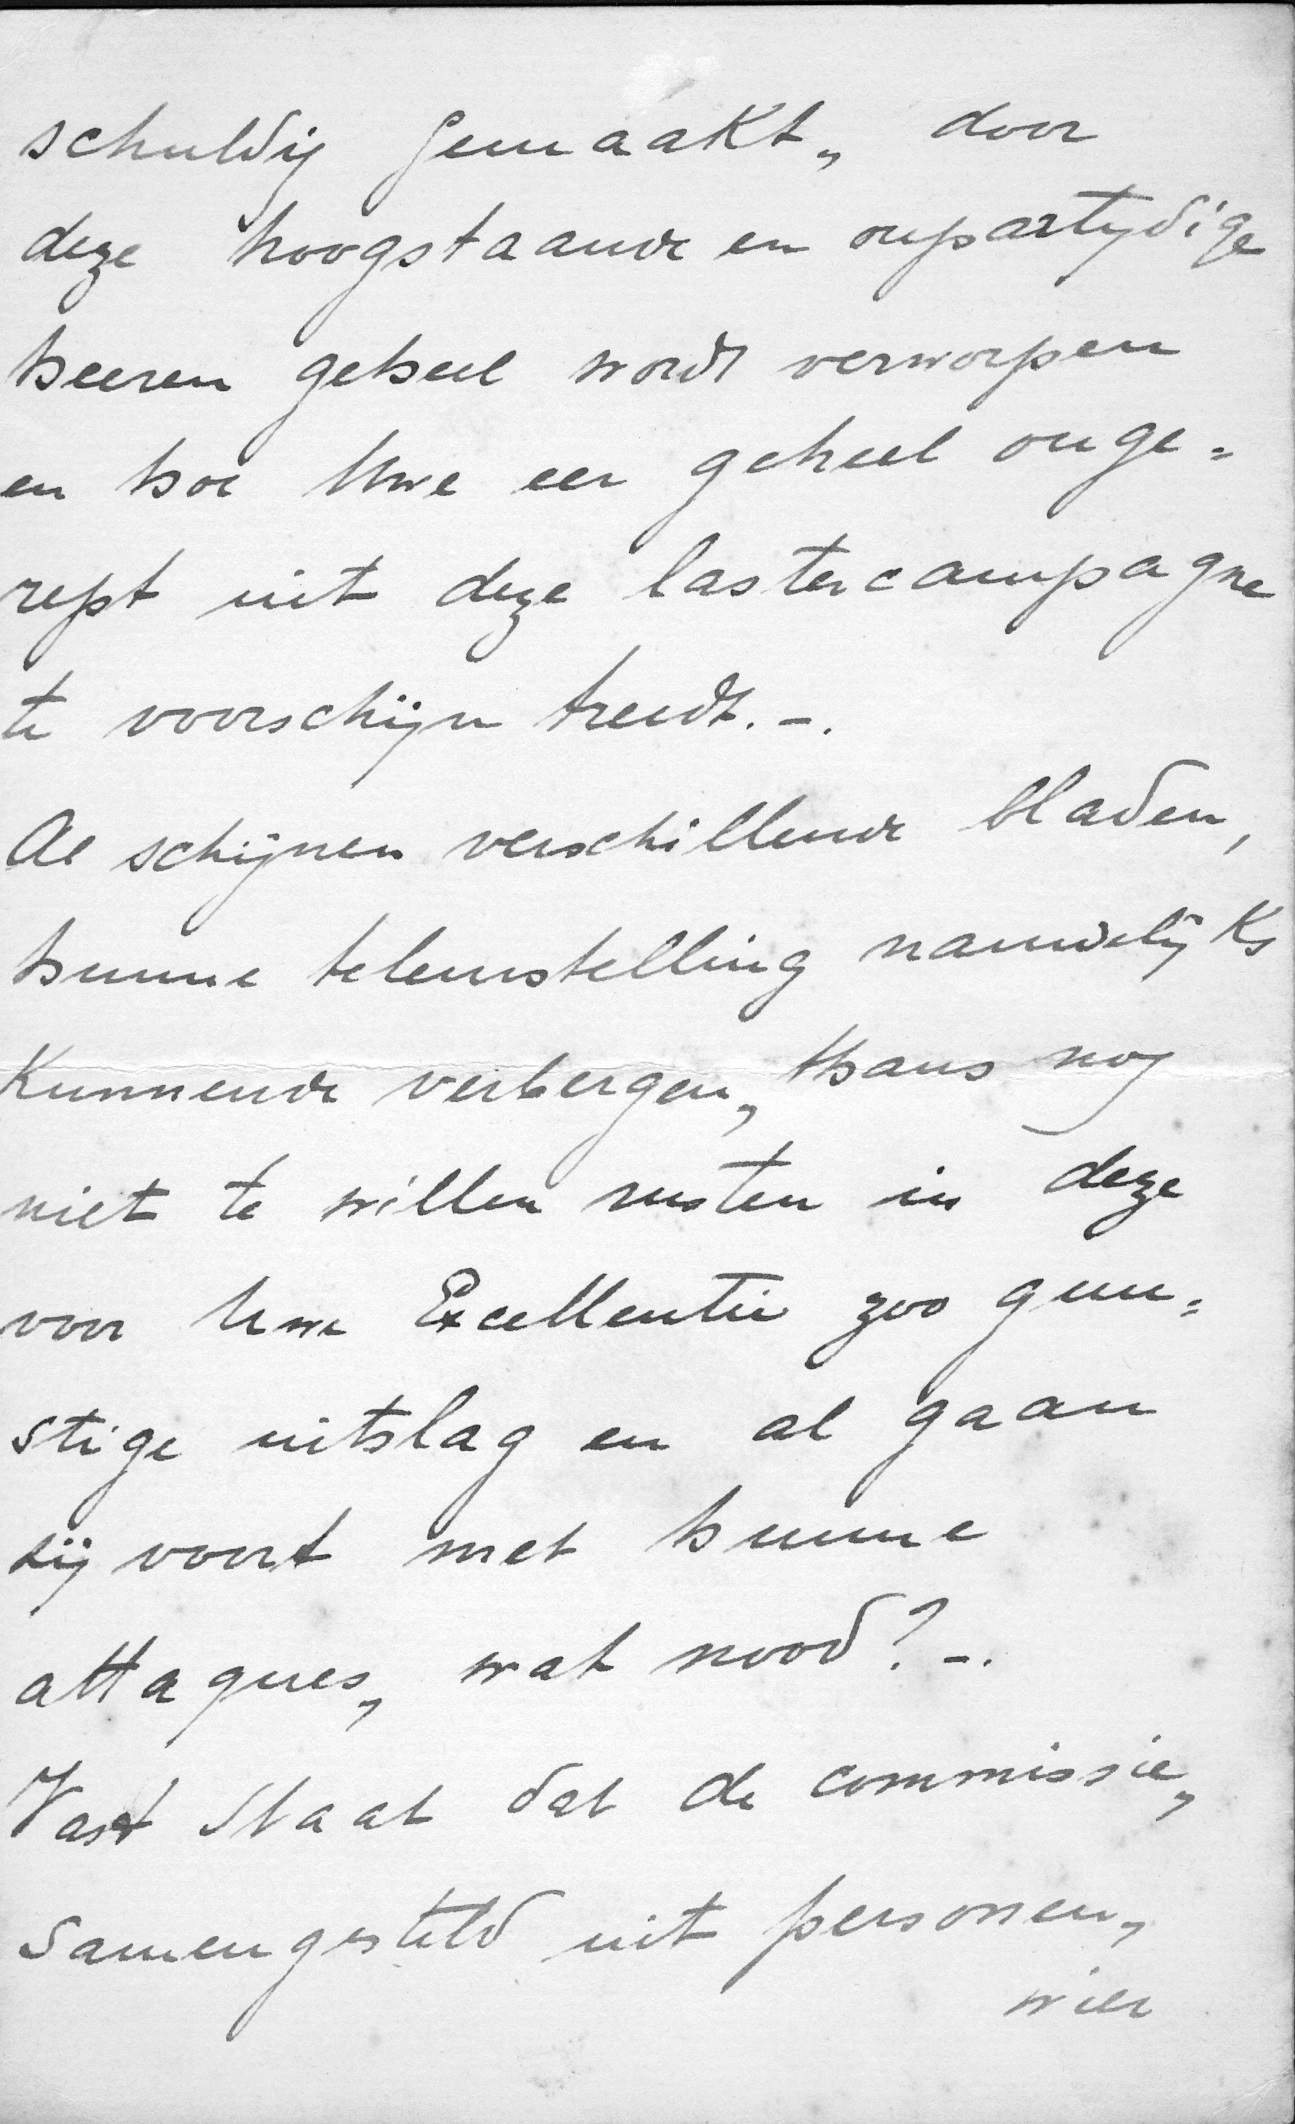 schuldig gemaakt„ door
deze hoogstaande en onpartijdige
heeren geheel wordt verworpen
en hoe Uwe eer geheel onge=
rept uit deze lastercampagne
te voorschijn treedt.-.
Al schijnen verschillende bladen,
hunne teleurstelling nauwelijks
kunnende verbergen„ thans nog
niet te willen rusten in deze
voor Uwe Excellentie zoo gun=
stige uitslag en al gaan
zij voort met hunne
attaques„ wat nood?-.
Vast staat dat de commissie„
samengesteld uit personen„
wier